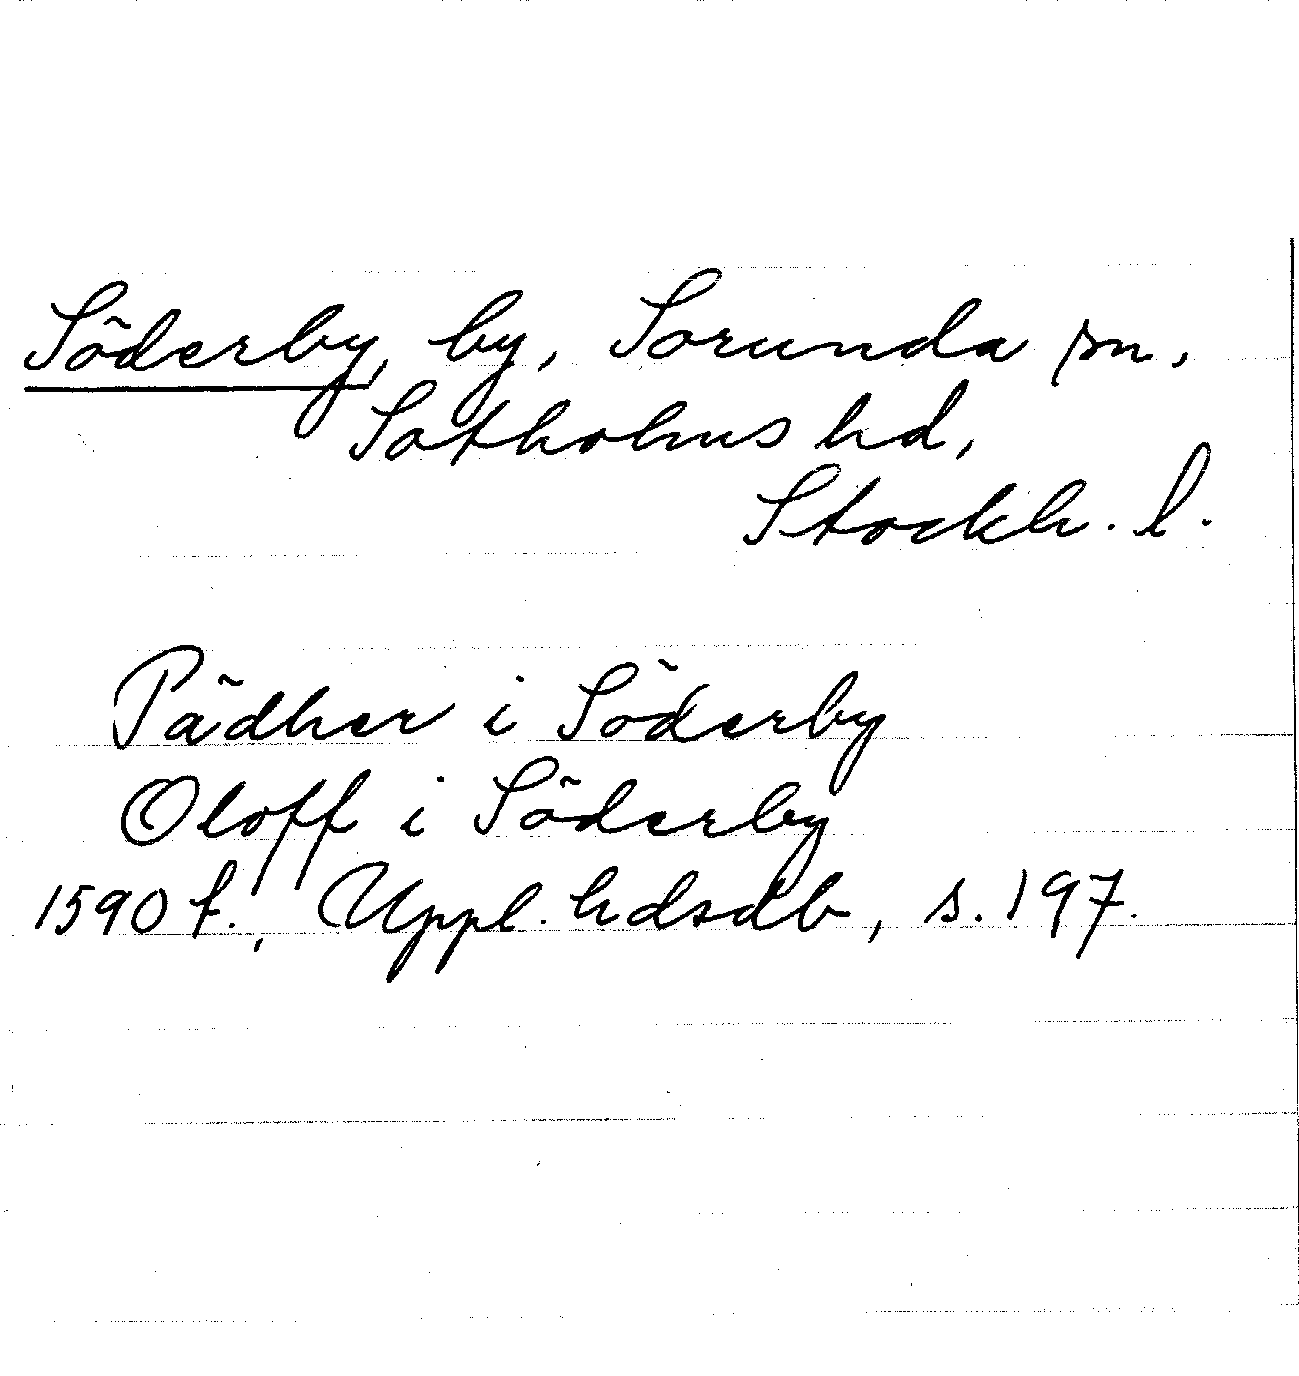 Söderby, by, Sorunda sn,
Sotholms hd,
Stockh. l.
Pädher i Söderby
Oloff i Söderby
1590 f., Uppl. hdsdb, s. 197.